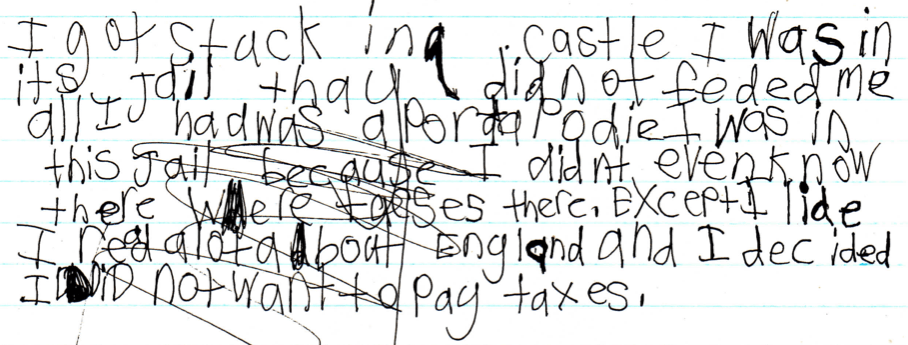 I got stack in a castle I was in
its jail thay did not feded me
all I had was a Portapodie I was in
this Jail because I didnt even know
there where taeses there. EXcept I lide
I read alot adbout England and I decided
I DID not want to pay taxes.